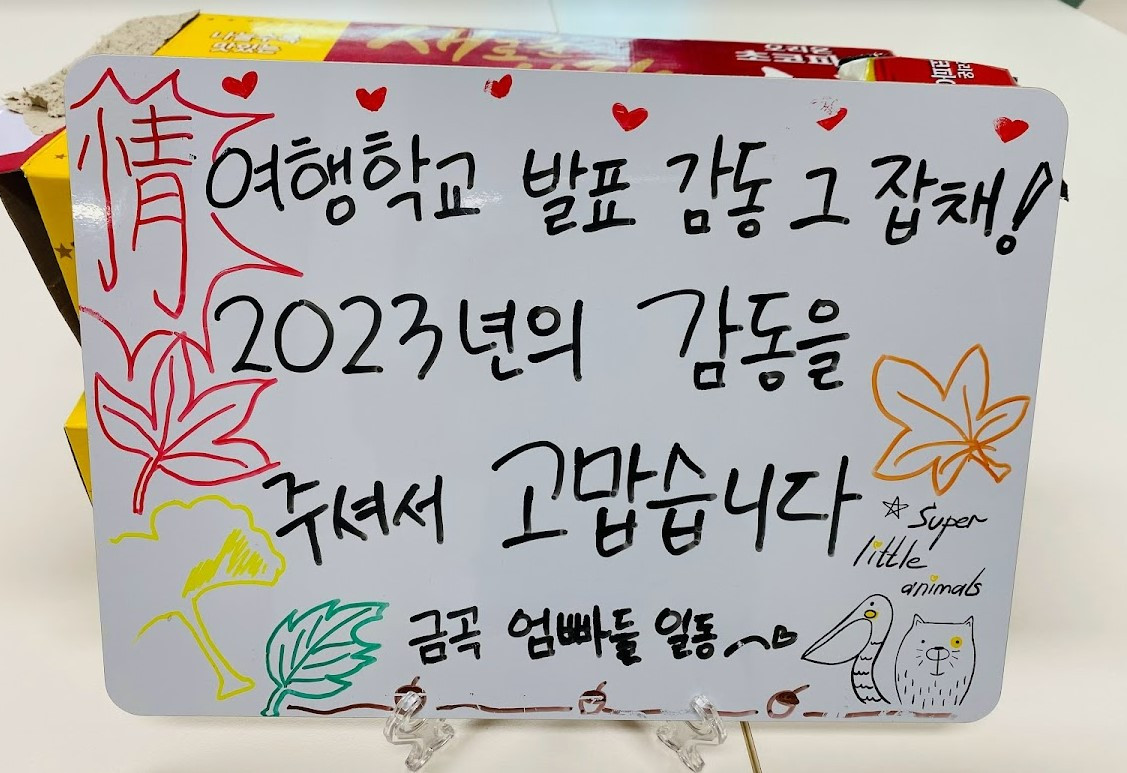 나눌수록
맛있는
오리온
초코파
情
여행학교 발표 감동 그 잡채!
2023년의 감동을
주셔서 고맙습니다
Super
little
animals
금곡 엄빠들 일동